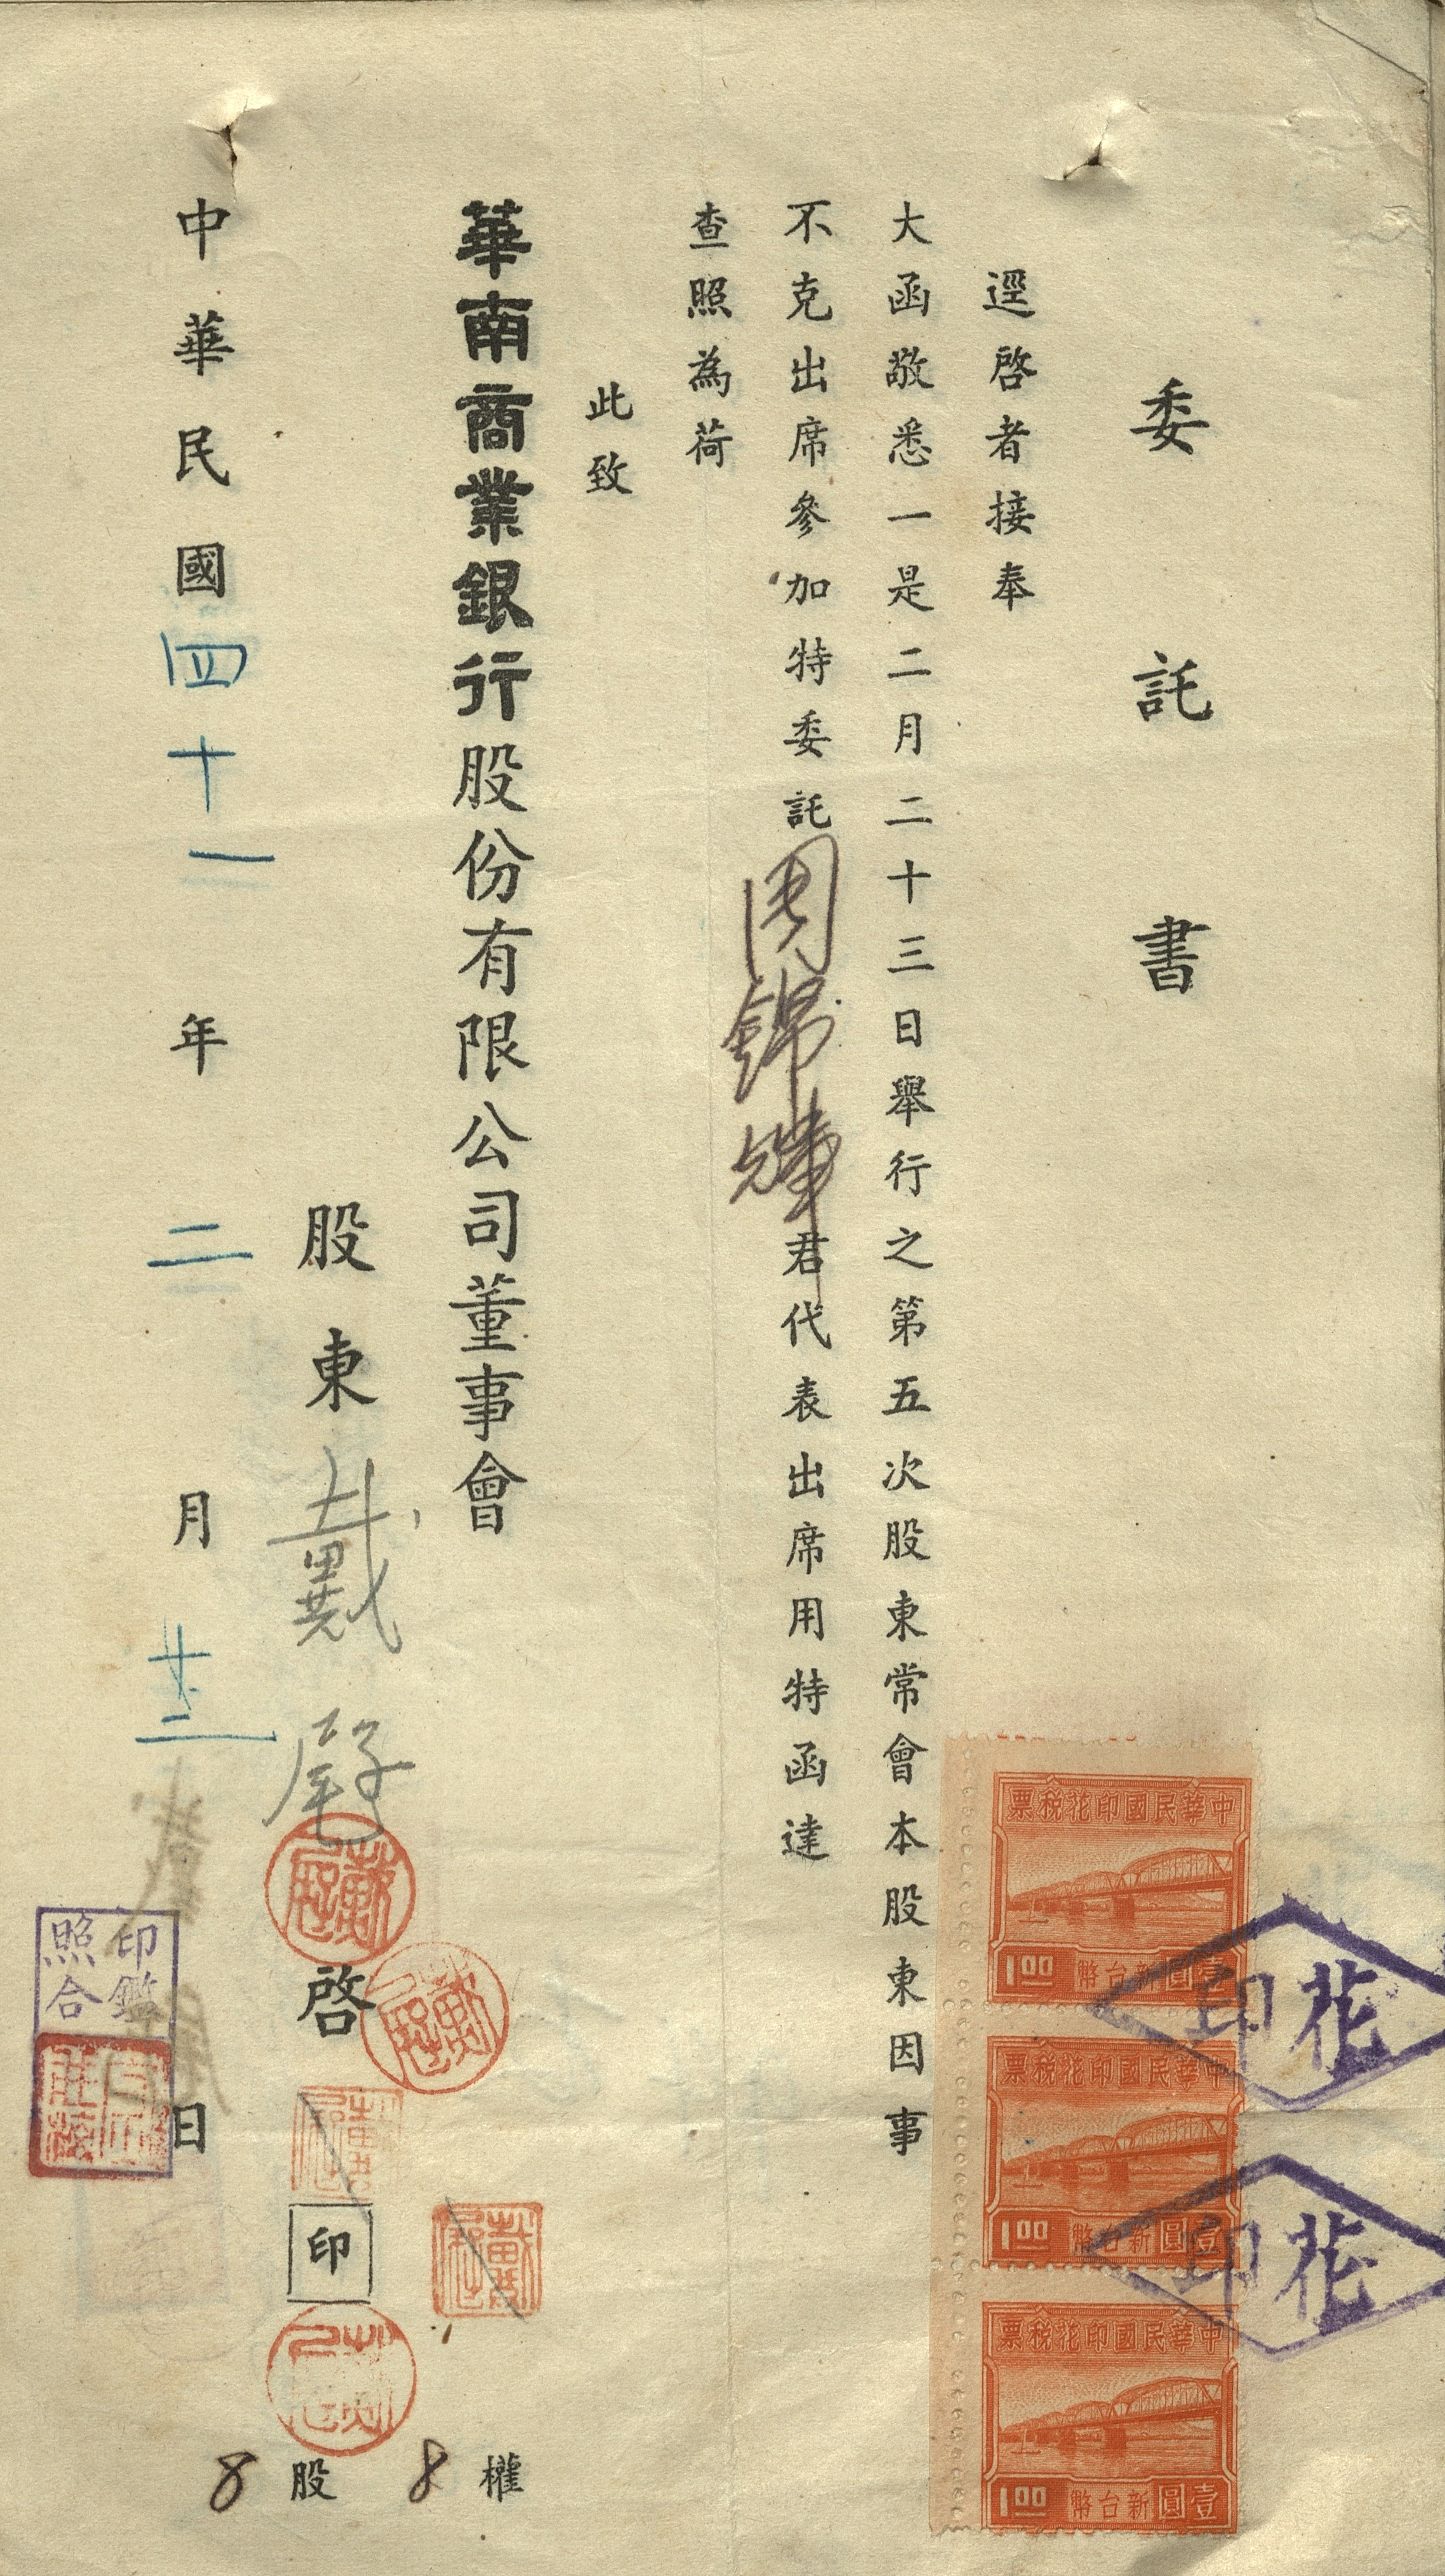 委託書
逕啓者接奉
大函敬悉一是二月二十三日舉行之第五次股東常會本股東因事
不克出席參加特委託周錦輝君代表出席用特函達
查照為荷
此致
華南商業銀行股份有限公司董事會
股東戴 啓 印
8股 8權
中華民國四十一年二月 日
印鑑
照合
中華民國印花稅票
1.00 新台幣壹圓
中華民國印花稅票
1.00 新台幣壹圓
中華民國印花稅票
1.00 新台幣壹圓
花印
花印